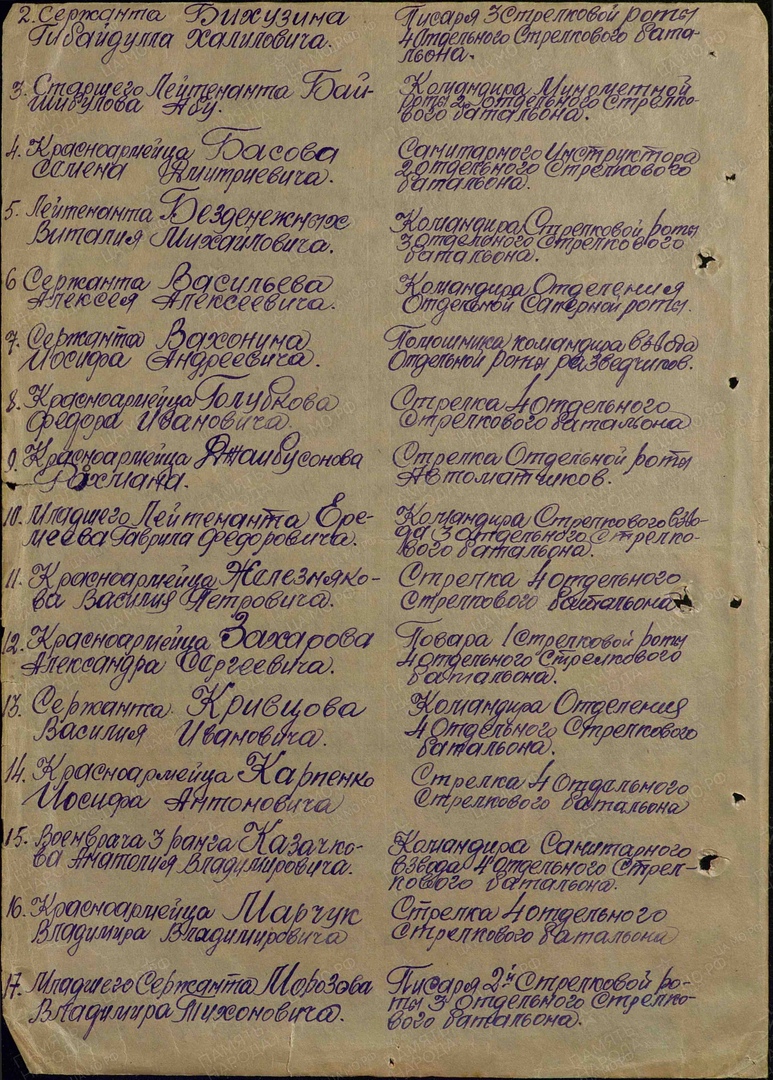 2. Сержанта Бихузина
Гибайдулла Халиловича.
Писаря 3 Стрелковой роты
4 Отдельного Стрелкового бата-
льона.
3. Старшего Лейтенанта Бай-
шибулова Абу.
Командира Минометной
роты 2 отдельного Стрелко-
вого батальона.
4. Красноармейца Басова
Семена Дмитриевича.
Санитарного Инструктора
2 отдельного Стрелкового
батальона.
5. Лейтенанта Безденежных
Виталия Михайловича.
Командира Стрелковой роты
3 отдельного Стрелкового
батальона.
6 Сержанта Васильева
Алексея Алексеевича.
Командира Отделения
Отдельной Саперной роты.
7. Сержанта Вахонина
Иосифа Андреевича.
Помошника командира взвода
Отдельной роты разведчиков.
8. Красноармейца Голубкова
Федора Ивановича.
Стрелка 4 отдельного
Стрелкового батальона
9. Красноармейца Джайбусонова
Рахмана.
Стрелка Отдельной роты
Автоматчиков.
10. Младшего Лейтенанта Ере-
меева Гаврила Федоровича.
Командира Стрелкового взво-
да 3 отдельного Стрелко-
вого батальона.
11. Красноармейца Железняко-
ва Василия Петровича.
Стрелка 4 отдельного
Стрелкового батальона
12. Красноармейца Захарова
Александра Сергеевича.
Повара 1 Стрелковой роты
4 отдельного Стрелкового
батальона.
13. Сержанта Кривцова
Василия Ивановича.
Командира Отделения
4 Отдельного Стрелкового
батальона.
14. Красноармейца Карпенко
Иосифа Антоновича
Стрелка 4 Отдельного
Стрелкового батальона
15. Военврача 3 ранга Казачко-
ва Анатолия Владимировича.
Командира Санитарного
взвода 4 Отдельного Стрел-
кового батальона.
16. Красноармейца Марчук
Владимира Владимировича
Стрелка 4 отдельного
Стрелкового батальона
17. Младшего Сержанта Морозова
Владимира Тихоновича.
Писаря 2й Стрелковой ро-
ты 3 отдельного Стрелко-
вого батальона.